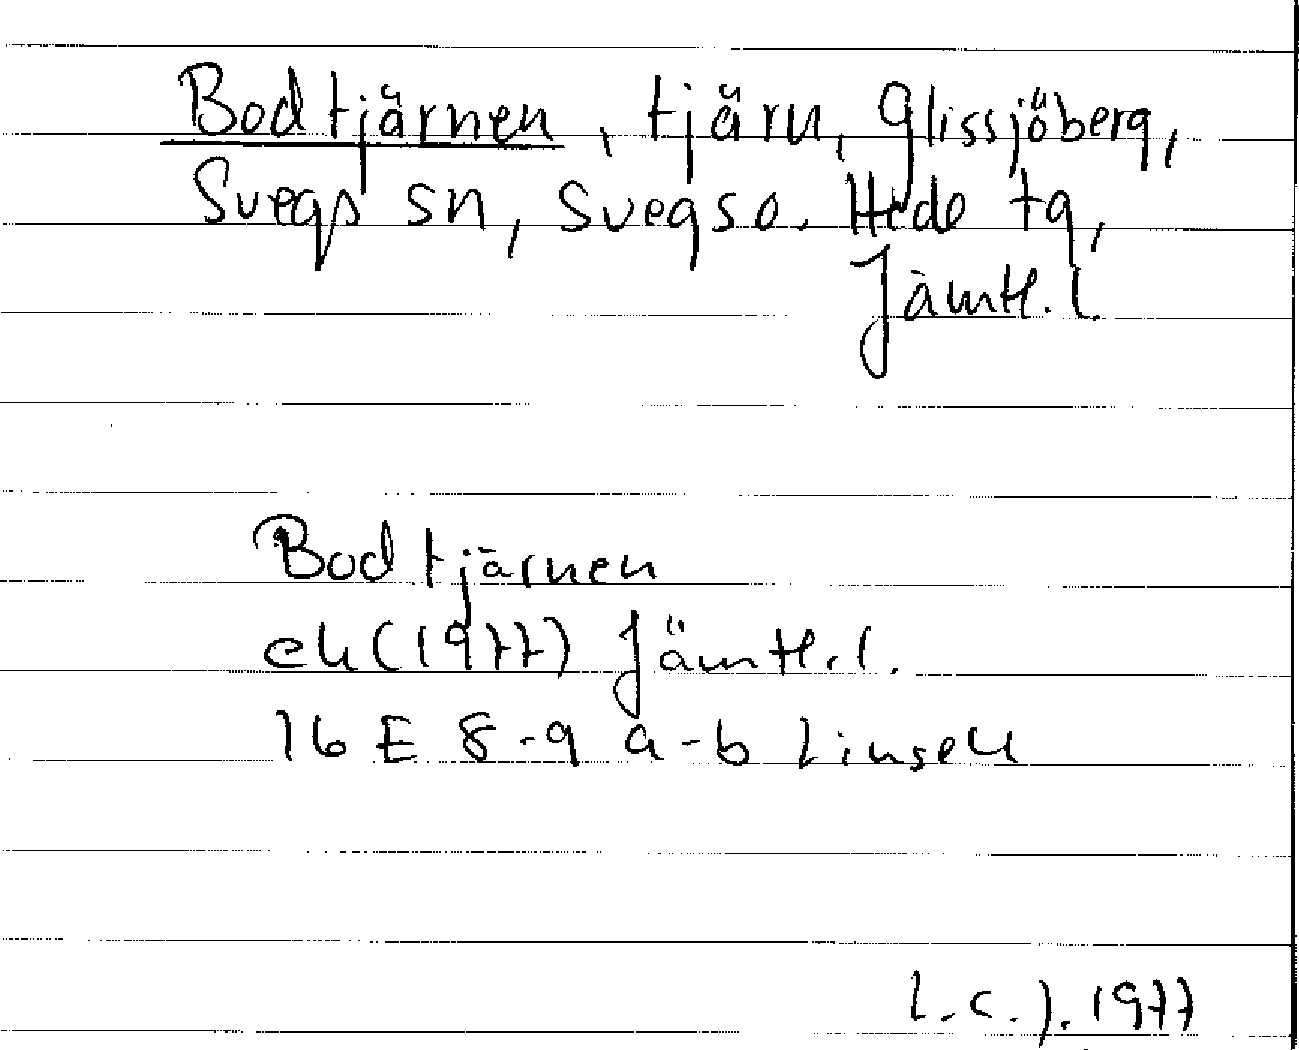 Bodtjärnen, tjärn, Glissjöberg,
Svegs sn, Svegs o. Hede tg,
Jämtl. l.
Bodtjärnen
ek (1977) Jämtl. l.
16 E 8-9 a-b Linsell
L.C.J. 1977